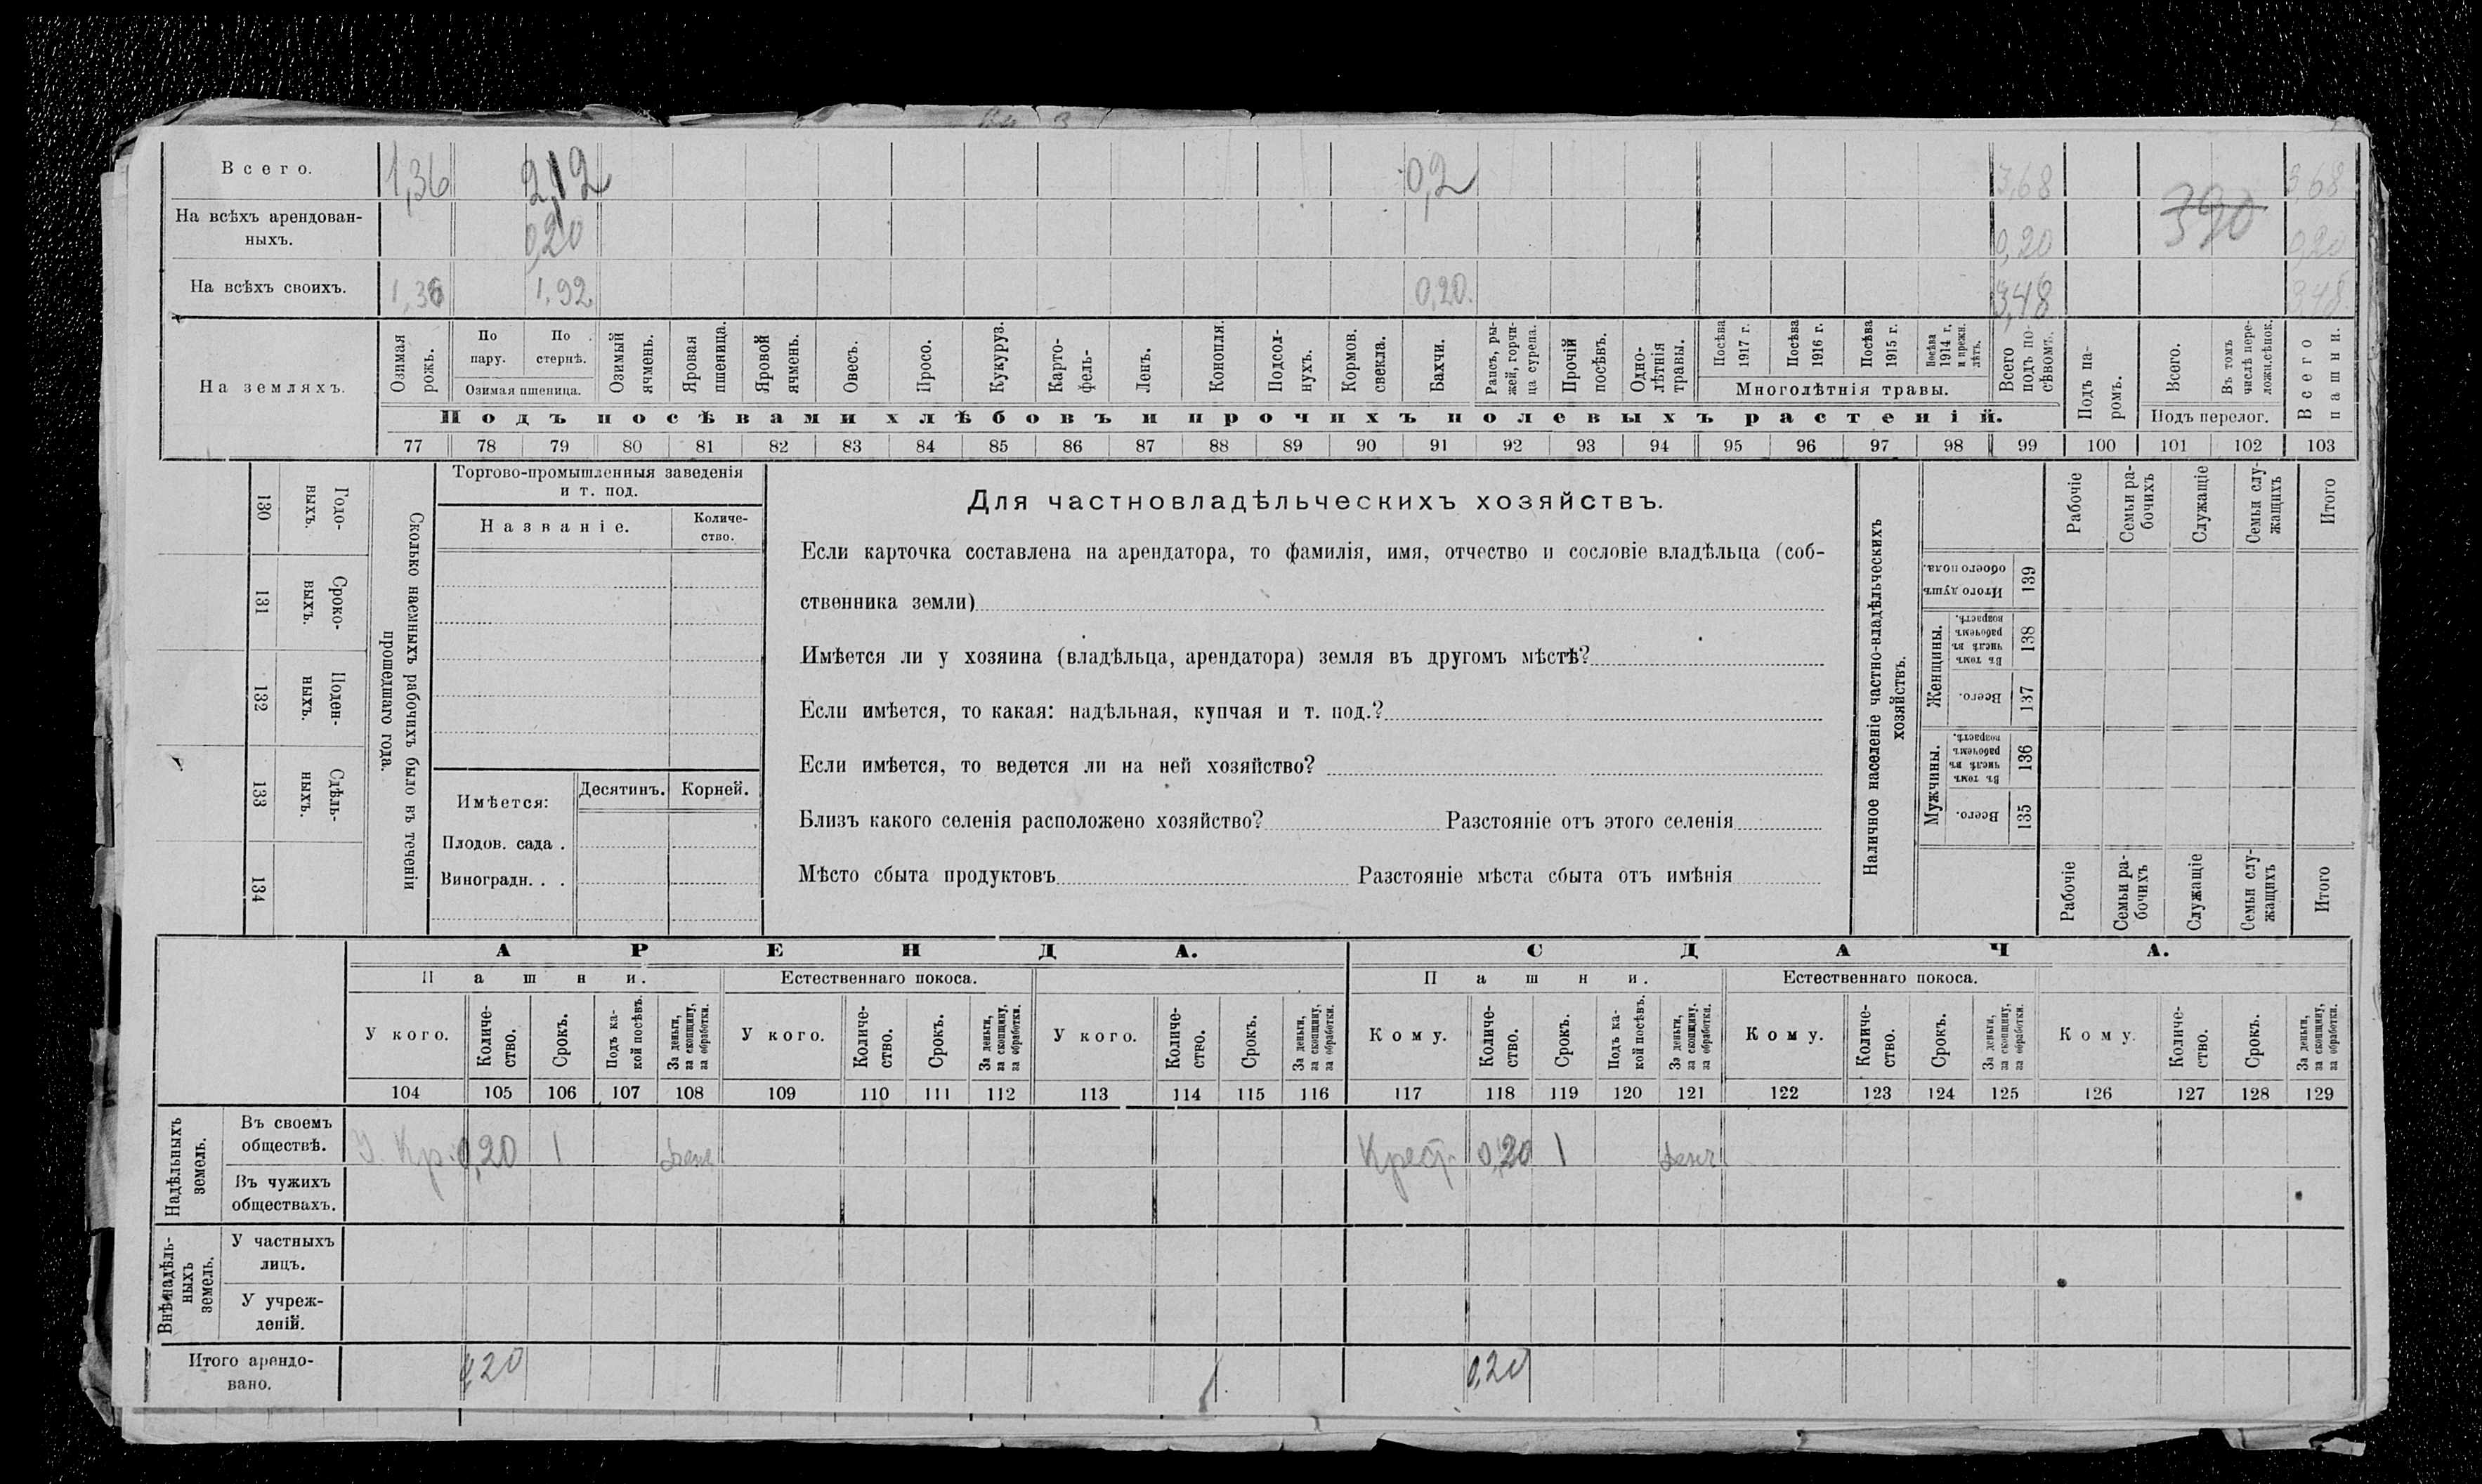 Всего. 1,36 2,12 0,2 3,68 3,68
На всѣхъ арендован-
ныхъ. 0,20 0,20 390 0,20
На всѣхъ своихъ. 1,36 1,92 0,20. 3,48 3,48
На земляхъ.
Озимая рожь.
По пару.
По стернѣ.
Озимая пшеница.
Озимый ячмень.
Яровая пшеница.
Яровой ячмень.
Овесъ.
Просо.
Кукуруз.
Карто-
фель-
Ленъ.
Конопля.
Подсол-
нухъ.
Кормов. свекла.
Бахчи.
Рапсъ, ры-
жей, горчи-
ца сурепа.
Прочій посѣвъ.
Одно-
лѣтнія
травы.
Посѣва 1917 г.
Посѣва 1916 г.
Посѣва 1915 г.
Посѣва 1914 г. и прежн. лѣтъ.
Многолѣтнія травы.
Всего подъ по-
сѣвомъ.
Подъ па-
ромъ.
Всего.
Въ томъ числѣ пере-
ложн.сѣнок.
Подъ перелог.
Всего пашни.
Подъ посѣвами хлѣбовъ и прочихъ полевыхъ растеній.
77 78 79 80 81 82 83 84 85 86 87 88 89 90 91 92 93 94 95 96 97 98 99 100 101 102 103
Годо-
выхъ.
130
Сроко-
выхъ.
131
Поден-
ныхъ.
132
Сдѣль-
ныхъ.
133
134
Сколько наемныхъ рабочихъ было въ теченіи
прошедшаго года.
Торгово-промышленныя заведенія
и т. под.
Названіе.
Количе-
ство.
Имѣется: Десятинъ. Корней.
Плодов. сада .
Виноградн. . .
Для частновладѣльческихъ хозяйствъ.
Если карточка составлена на арендатора, то фамилія, имя, отчество и сословіе владѣльца (соб-
ственника земли)
Имѣется ли у хозяина (владѣльца, арендатора) земля въ другомъ мѣстѣ?
Если имѣется, то какая: надѣльная, купчая и т. под.?
Если имѣется, то ведется ли на ней хозяйство?
Близъ какого селенія расположено хозяйство? Разстояніе отъ этого селенія
Мѣсто сбыта продуктовъ Разстояніе мѣста сбыта отъ имѣнія
Наличное населеніе частно-владѣльческихъ
хозяйствъ.
Рабочіе
Семьи ра-
бочихъ
Служащіе
Семьи слу-
жащихъ
Итого
Итого душъ
обоего пола.
139
Женщины.
Въ томъ
числѣ въ
рабочемъ
возрастѣ.
138
Всего.
137
Мужчины.
Въ томъ
числѣ въ
рабочемъ
возрастѣ.
136
Всего.
135
Рабочіе
Семьи ра-
бочихъ
Служащіе
Семьи слу-
жащихъ
Итого
АРЕНДА. СДАЧА.
Пашни. Естественнаго покоса. Пашни. Естественнаго покоса.
У кого.
Количе-
ство.
Срокъ.
Подъ ка-
кой посѣвъ.
За деньги,
за скопщину,
за обработки.
У кого.
Количе-
ство.
Срокъ.
За деньги,
за скопщину,
за обработки.
У кого.
Количе-
ство.
Срокъ.
За деньги,
за скопщину,
за обработки.
Кому.
Количе-
ство.
Срокъ.
Подъ ка-
кой посѣвъ.
За деньги,
за скопщину,
за обработки.
Кому.
Количе-
ство.
Срокъ.
За деньги,
за скопщину,
за обработки.
Кому.
Количе-
ство.
Срокъ.
За деньги,
за скопщину,
за обработки.
104 105 106 107 108 109 110 111 112 113 114 115 116 117 118 119 120 121 122 123 124 125 126 127 128 129
Надѣльныхъ
земель.
Въ своемъ
обществѣ. У. Кр. 0,20 1 Крест. 0,20 1
Въ чужихъ
обществахъ.
Внѣнадѣль-
ныхъ
земель.
У частныхъ
лицъ.
У учреж-
деній.
Итого арендо-
вано. 0,20 0,20